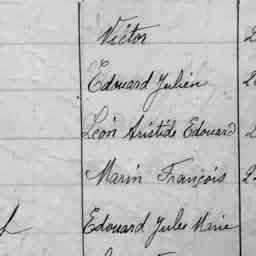 Victor
Edouard Julien
Léon Aristide Edouard
Marin François
Edouard Jules Marie